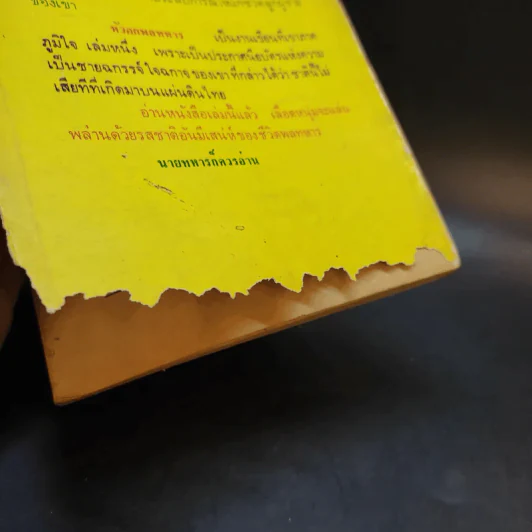 ของเขา
หัวอกพลทหาร เป็นงานเขียนที่เขาภาค
ภูมิใจ เล่มหนึ่ง เพราะเป็นประกาศนียบัตรแห่งความ
เป็นชายฉกรรจ์ ใจฉกาจ ของเขา ที่กล่าวได้ว่า ชาตินี้ไม่
เสียทีที่เกิดมาบนแผ่นดินไทย
อ่านหนังสือเล่มนี้แล้ว เลือดหนุ่มจะเต้น
พล่านด้วยรสชาติอันมีเสน่ห์ของชีวิตพลทหาร
นายทหารก็ควรอ่าน